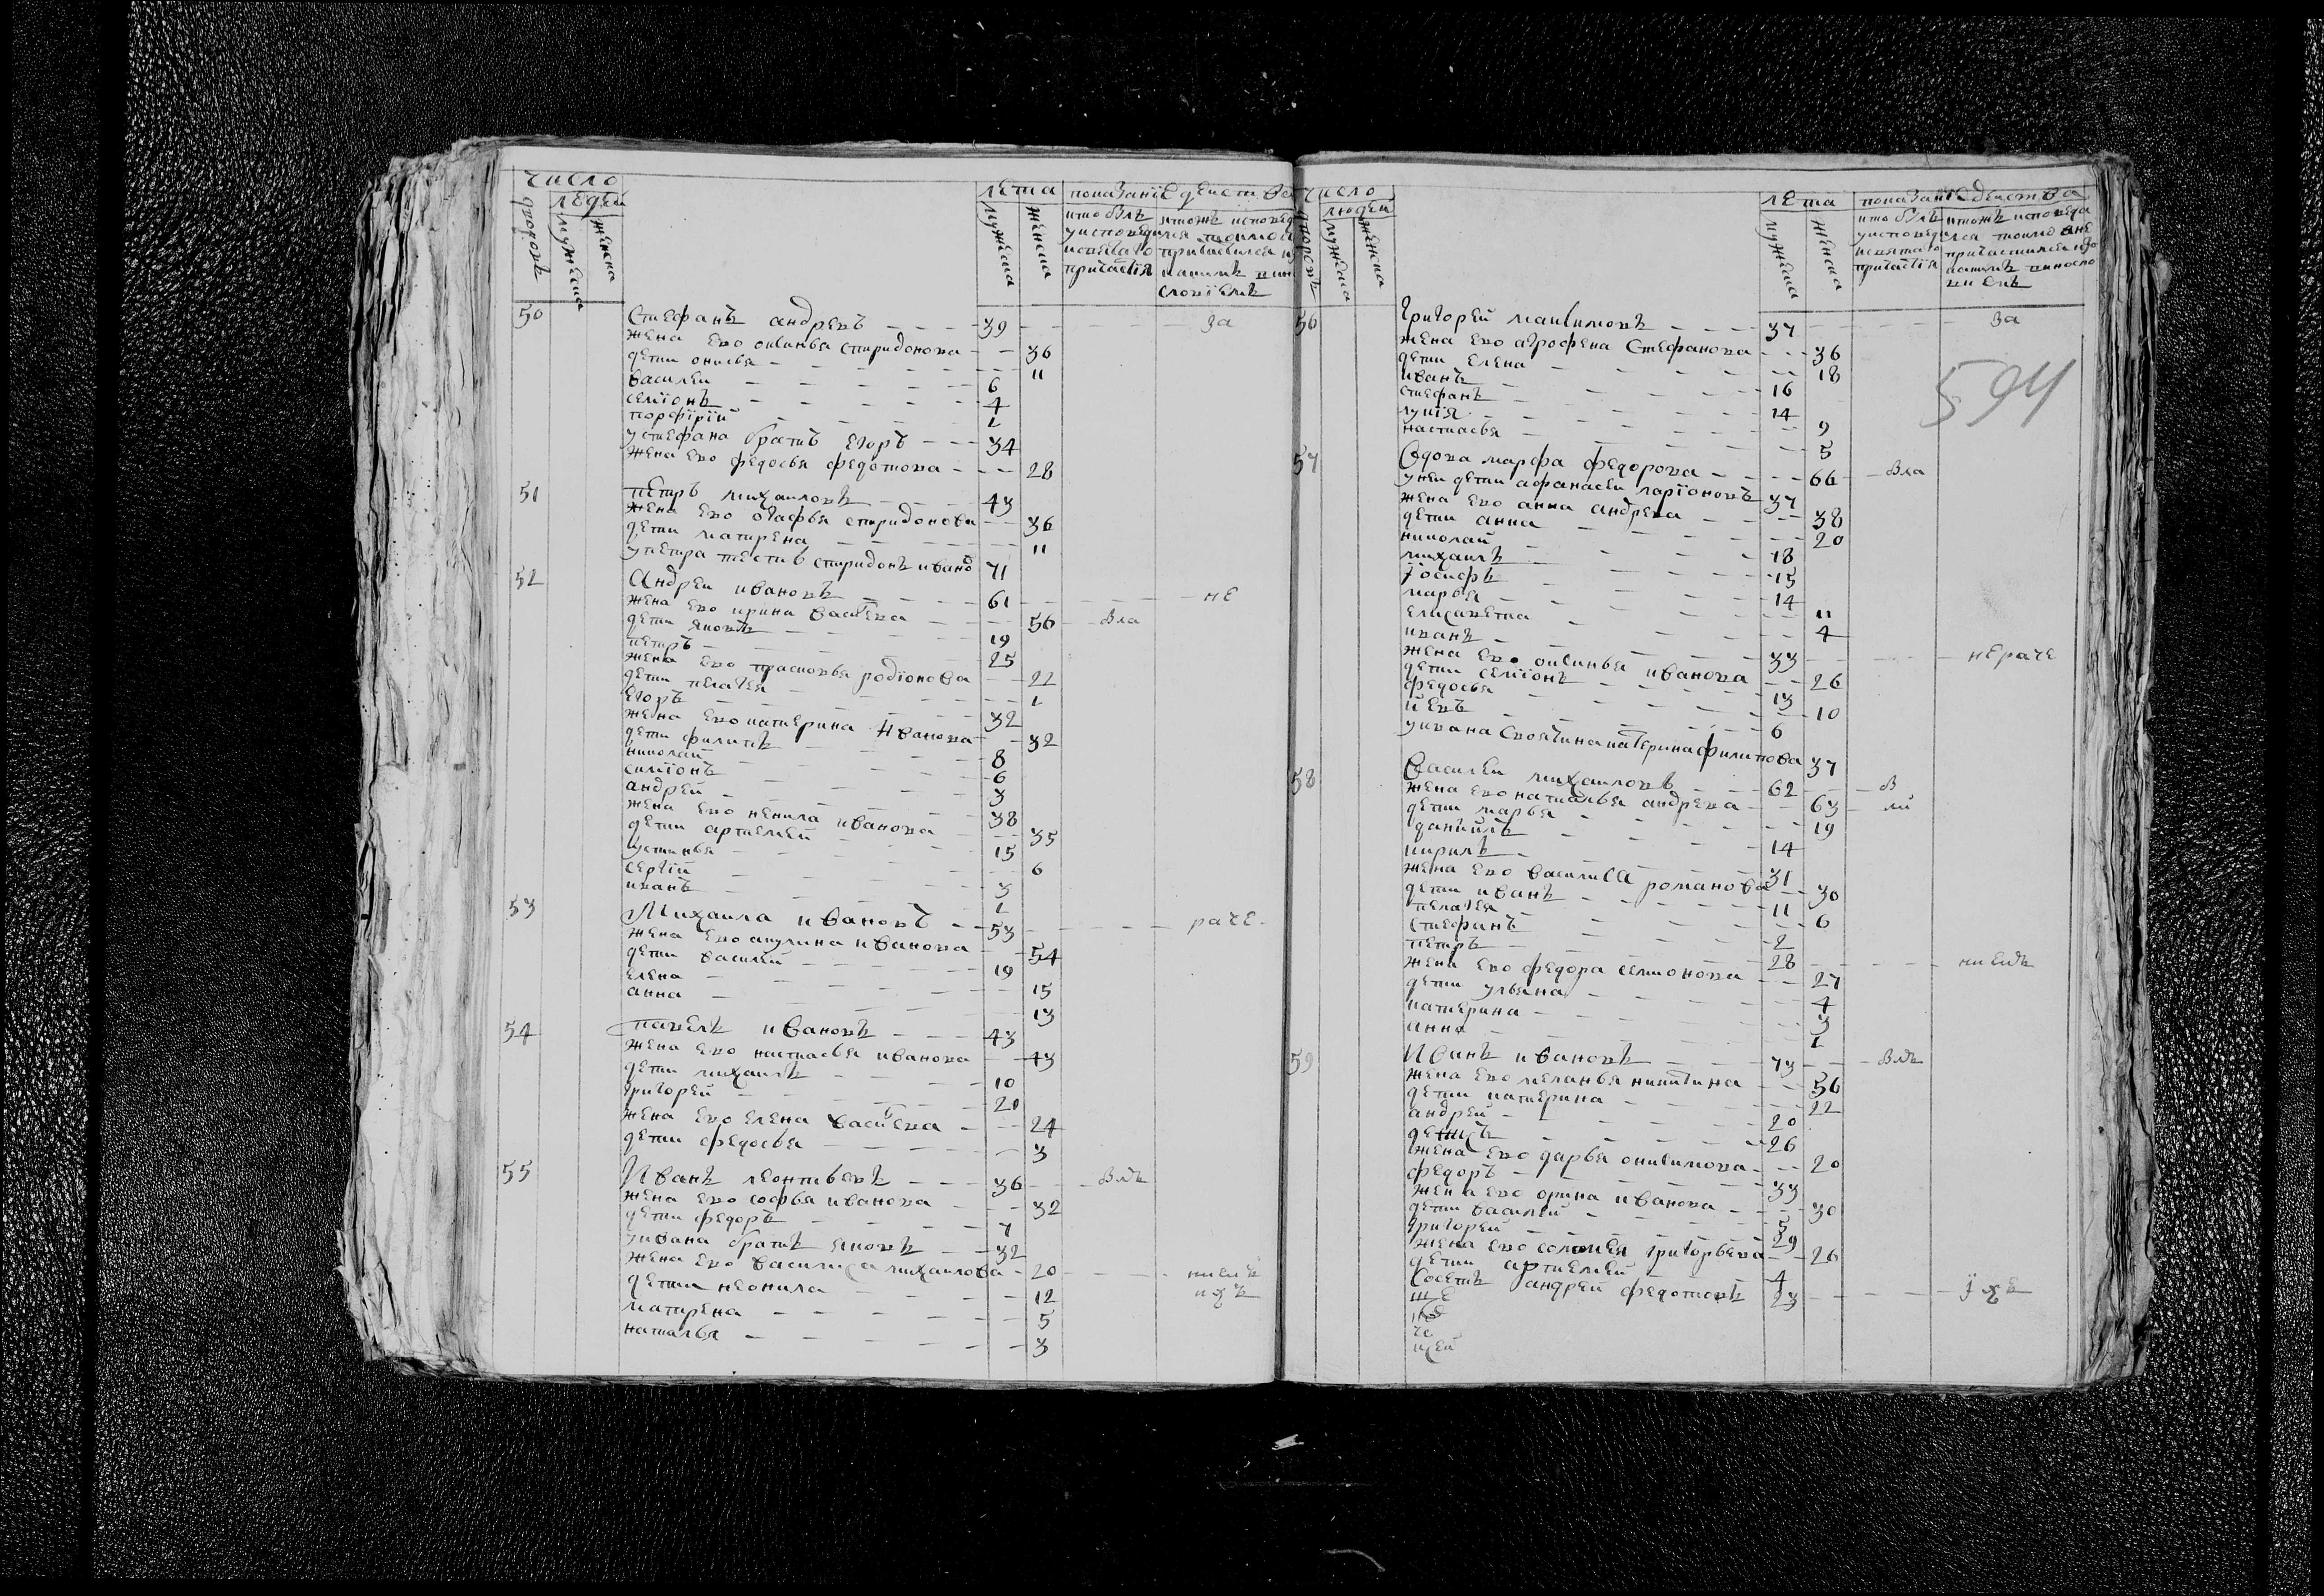 число
людей
дворовъ
мужеска
женска
лета
мужеска
женска
показание действа
50 Стефанъ андревъ 39 за
жена ево оксинья спиридонова 36
дети онисья 11
василеи 6
семїонъ 4
порфїрїй 1
у стефана братъ егоръ 34
жена ево федосья федотова 28
51 петръ михаиловъ 43
жена ево огафья спиридонова 36
дети матрена 11
у петра тесть спиридонъ иванов 71
52 Андреи ивановъ 61 не
жена ево ирина василева 56 вла
дети яковъ 19
петръ 25
жена ево прасковья родїонова 22
дети пелагея 1
егоръ 32
жена ево катерина Иванова 32
дети филипъ 8
николай 6
симїонъ 3
андрей 38
жена ево ненила иванова 35
дети артемей 15
устинья 6
сергїй 3
иванъ 1
53 Михаила ивановъ 53 раче
жена ево акулина иванова 54
дети василей 19
елена 15
анна 13
54 павелъ ивановъ 43
жена ево настасья иванова 43
дети михаилъ 10
григорей 20
жена ево елена василева 24
дети федосья 3
55 Иванъ леонтьевъ 36 влъ
жена ево софья иванова 32
дети федоръ 7
у ивана братъ яковъ 32
жена ево василиса михаилова 20 ниемъ
дети неонила 12 ихъ
матрена 5
наталья 3
число
людей
дворовъ
мужеска
женска
лета
мужеска
женска
показание действа
594
56 Григорей максимовъ 37 за
жена ево агрофена Стефанова 36
дети елена 18
иванъ 16
стефанъ 14
лукїя 9
настасья 5
57 вдова марфа федорова 66 вла
у неи дети афанасеи ларїоновъ 37
жена ево анна андрева 38
дети анна 20
николай 18
михаилъ 15
їосифъ 14
марья 11
елисавета 4
иванъ 33 нераче
жена ево оксинья иванова 26
дети семїонъ 13
федосья 10
иевъ 6
у ивана своячина катерина филипова 37
58 Василеи михаиловъ 62 в
жена ево наталья андрева 63 ли
дети марья 19
данїилъ 14
кирилъ 31
жена ево василиса романова 30
дети иванъ 11
пелагея 6
стефанъ 2
петръ 28 ни емъ
жена ево федора семионова 27
дети ульяна 4
катерина 3
анна 1
59 Иванъ ивановъ 73 влъ
жена ево меланья никитина 56
дети катерина 22
андрей 20
денисъ 26
жена ево дарья онисимова 20
федоръ 33
жена ево орина иванова 30
дети василей 5
григорей 29
жена ево соломея григорьева 26
дети артемей 4
Соседъ андрей федотовъ 23 їхъ